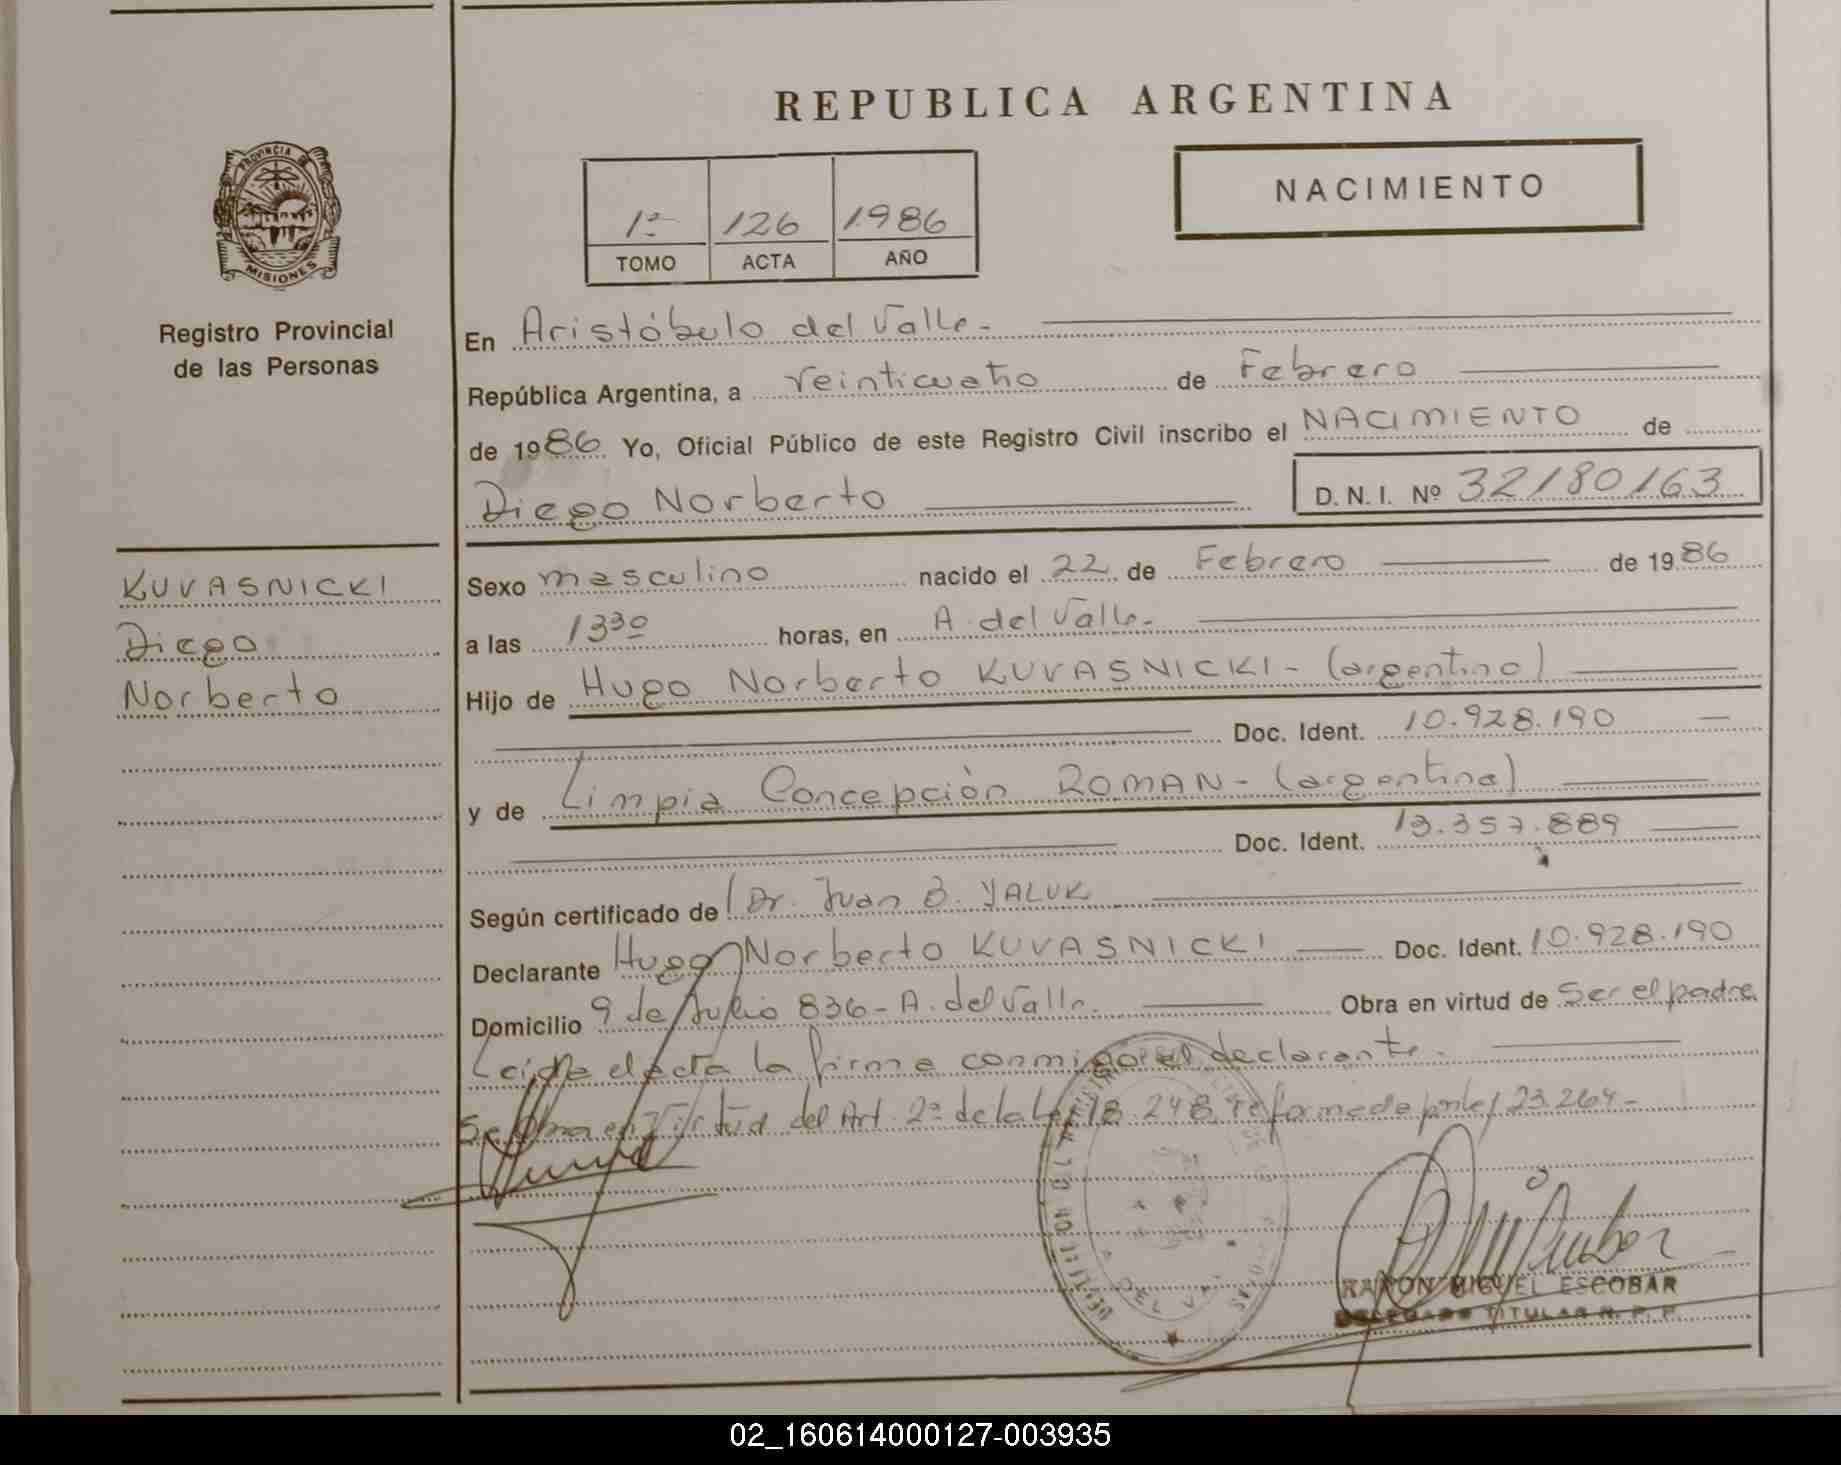 REPUBLICA ARGENTINA
PROVINCIA DE
MISIONES
Registro Provincial
de las Personas
1º 126 1986
TOMO ACTA AÑO
NACIMIENTO
En Aristóbulo del Valle.-
República Argentina, a veinticuatro de Febrero
de 1986 Yo, Oficial Público de este Registro Civil inscribo el NACIMIENTO de
Diego Norberto D.N.I. Nº 32180163
KUVASNICKI
Diego
Norberto
Sexo masculino nacido el 22 de Febrero de 1986
a las 13³⁰ horas, en A. del Valle.-
Hijo de Hugo Norberto KUVASNICKI - (argentino)
Doc. Ident. 10.928.190
y de Limpia Concepción ROMAN - (argentina)
Doc. Ident. 13.357.889
Según certificado de Dr. Juan B. YALUK
Declarante Hugo Norberto KUVASNICKI Doc. Ident. 10.928.190
Domicilio 9 de Julio 836 - A. del Valle. Obra en virtud de Ser el padre
Leída el acta la firma conmigo el declarante.
Se obra en virtud del Art. 2º de la Ley 18.248, reformada por ley 23.264 -
RAMON MIGUEL ESCOBAR
DELEGADO TITULAR R. P. P.
02_160614000127-003935